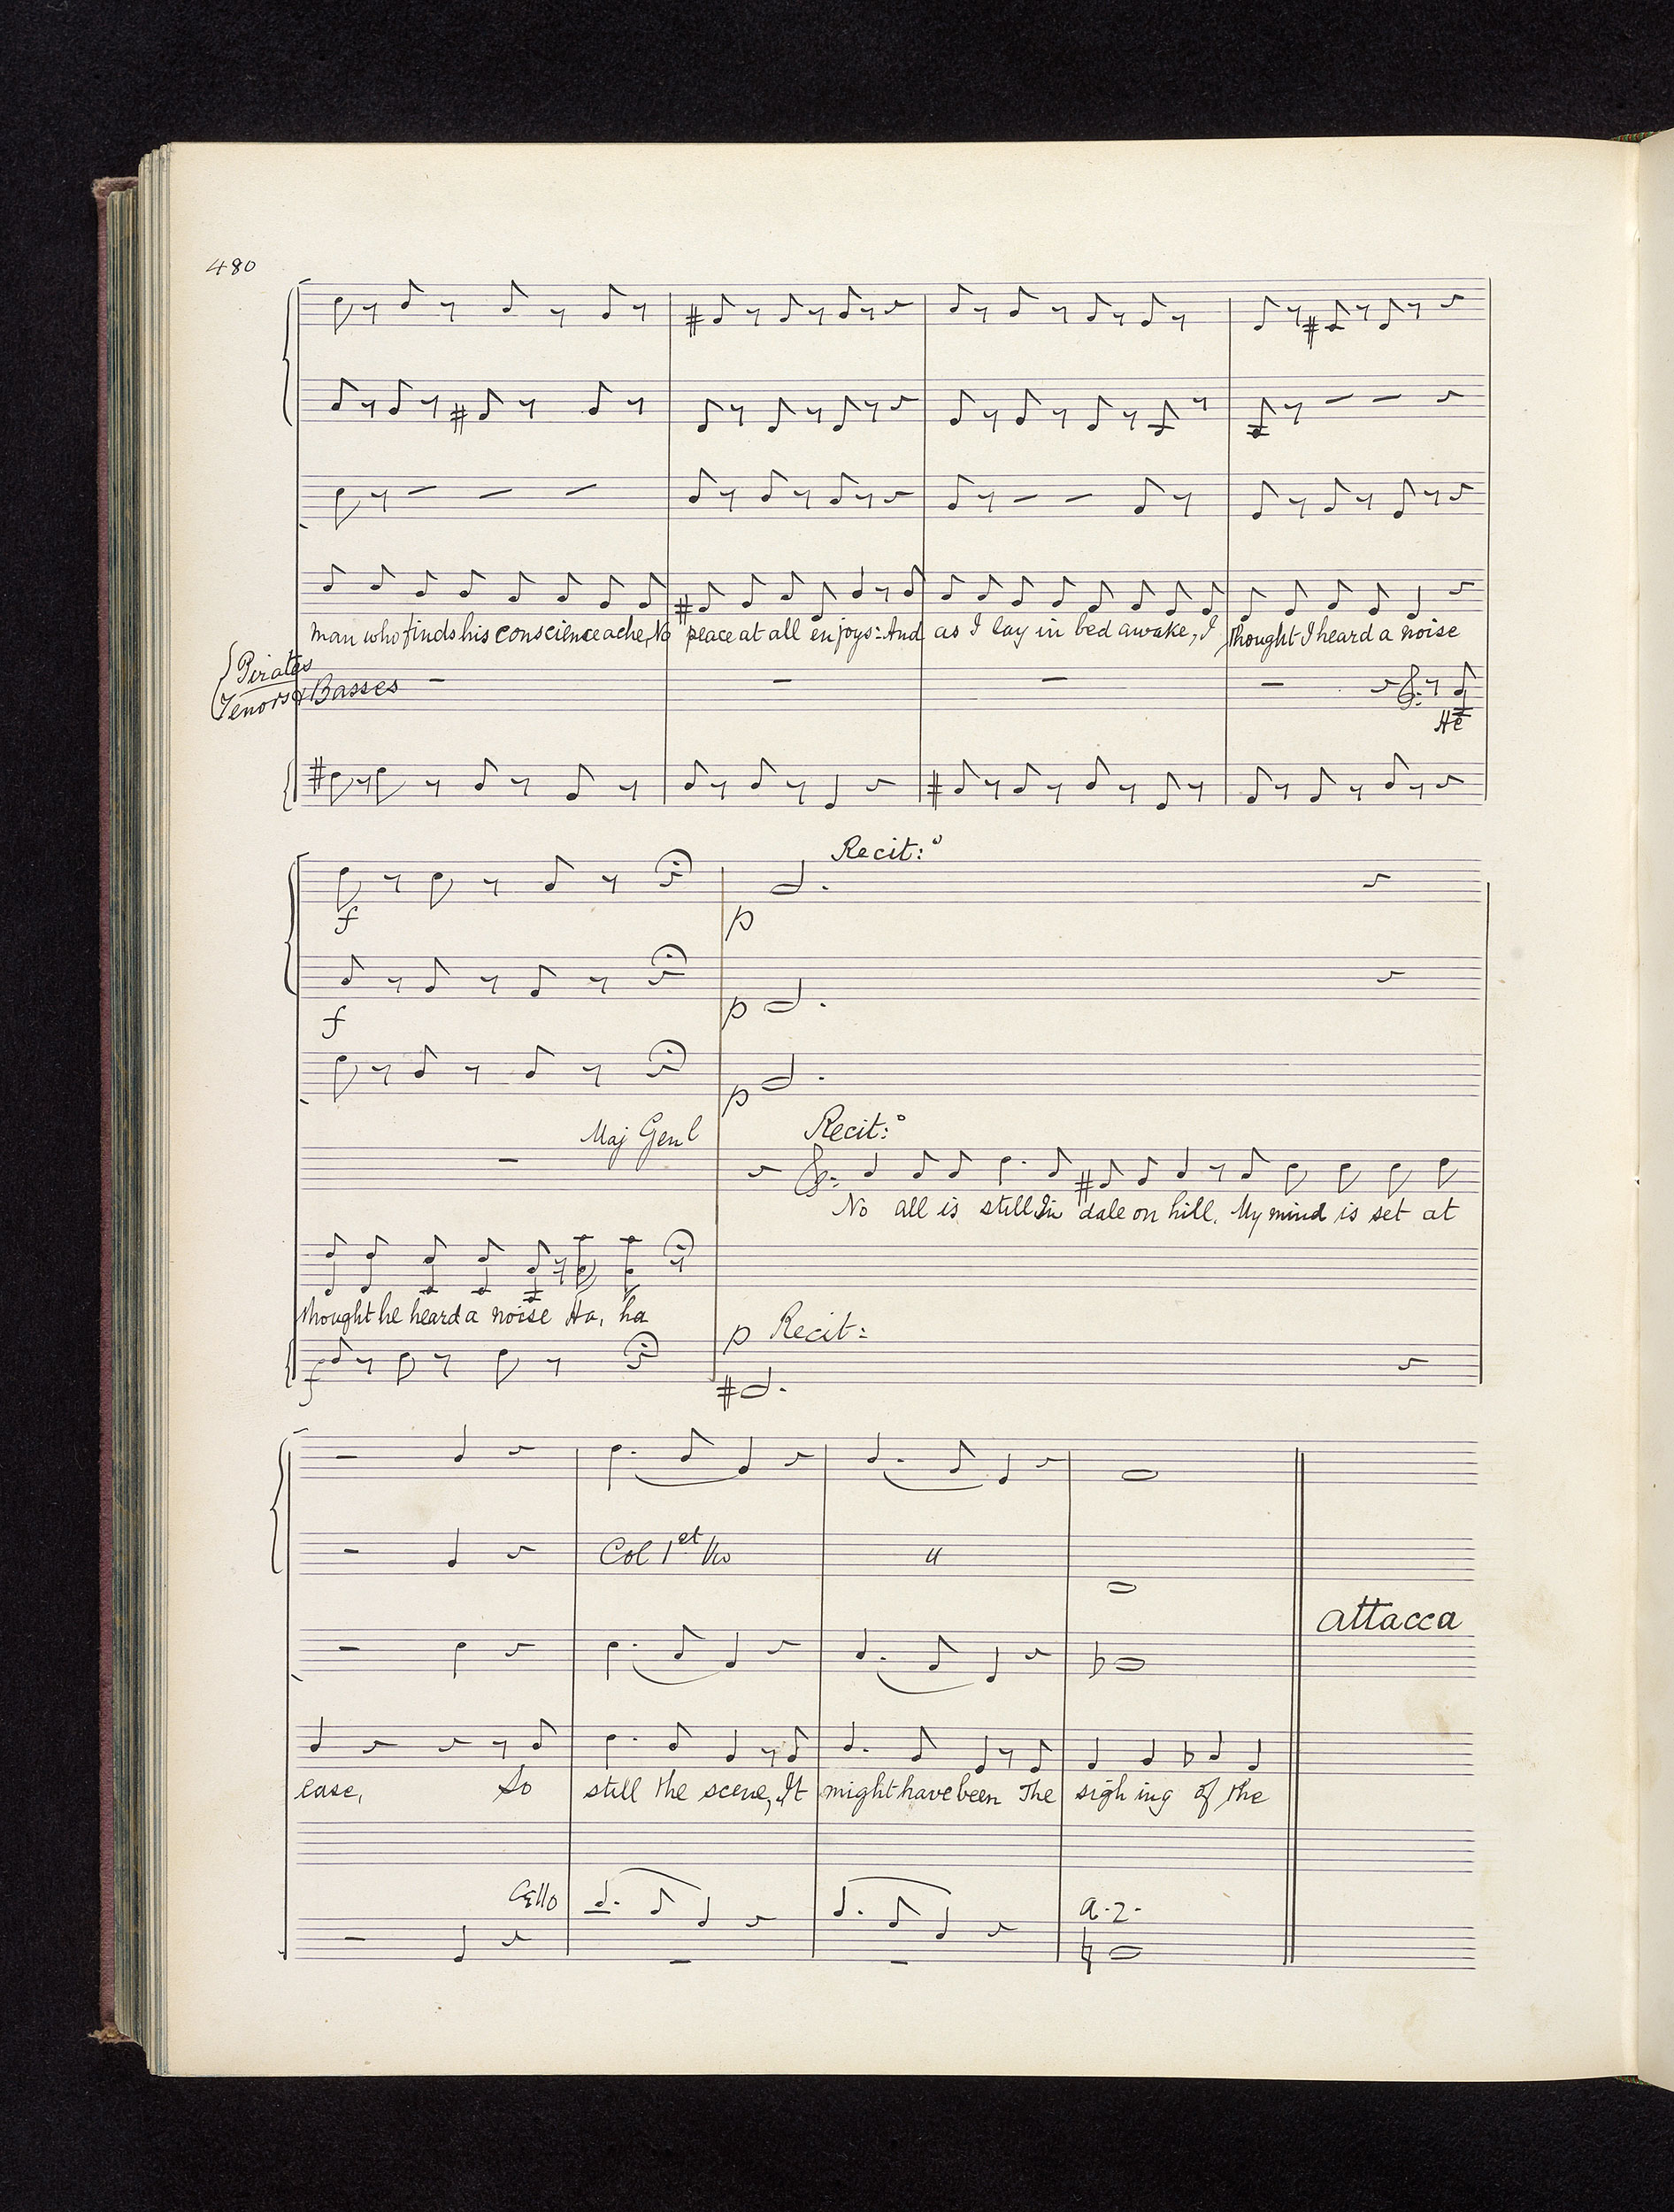 480
man who finds his conscience ache, No peace at all enjoys: And as I lay in bed awake, I thought I heard a noise
Pirates
Tenors & Basses
He
Recit:º
f p
f p
p
Maj Genl Recit:º
No all is still In dale on hill. My mind is set at
thought he heard a noise Ha, ha
p Recit:
f
Col 1st Vio "
attacca
ease, So still the scene, It might have been The sigh ing of the
Cello a. 2.